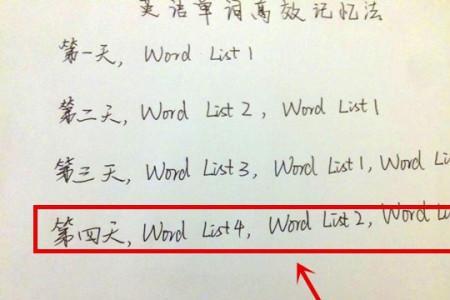 英语单词高效记忆法
第一天, Word List 1
第二天, Word List 2, Word List 1
第三天, Word List 3, Word List 1, Word Li
第四天, Word List 4, Word List 2, Word Li